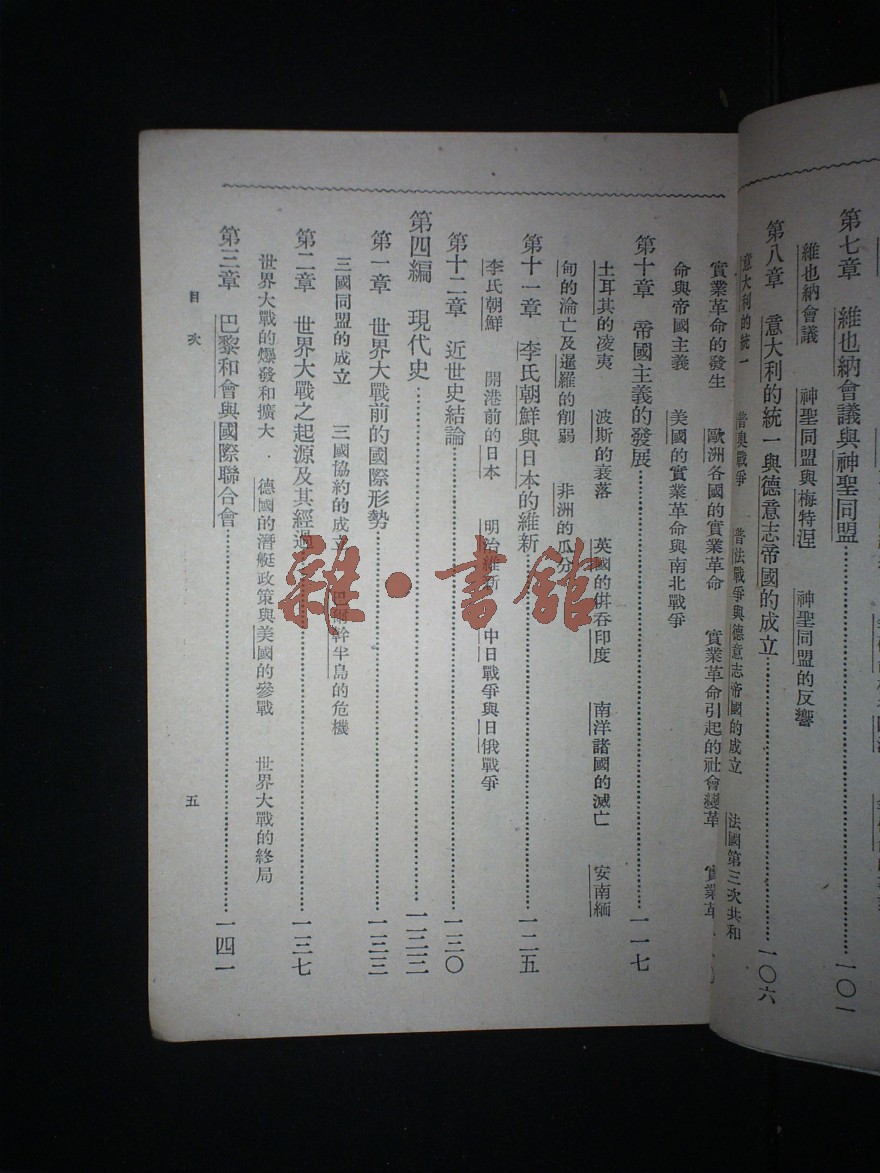 第七章　維也納會議與神聖同盟……一〇一
維也納會議　神聖同盟與梅特涅　神聖同盟的反響
第八章　意大利的統一與德意志帝國的成立……一〇六
意大利的統一　普奧戰爭　普法戰爭與德意志帝國的成立　法國第三次共和
實業革命的發生　歐洲各國的實業革命　實業革命引起的社會變革　實業革
命與帝國主義　美國的實業革命與南北戰爭
第十章　帝國主義的發展……一一七
土耳其的凌夷　波斯的衰落　英國的併吞印度　南洋諸國的滅亡　安南緬
甸的淪亡及暹羅的削弱　非洲的瓜分
第十一章　李氏朝鮮與日本的維新……一二五
李氏朝鮮　開港前的日本　明治維新　中日戰爭與日俄戰爭
第十二章　近世史結論……一三〇
第四編　現代史……一三三
第一章　世界大戰前的國際形勢……一三三
三國同盟的成立　三國協約的成立　巴爾幹半島的危機
第二章　世界大戰之起源及其經過……一三七
世界大戰的爆發和擴大　德國的潛艇政策與美國的參戰　世界大戰的終局
第三章　巴黎和會與國際聯合會……一四一
目次
五
雜·書館